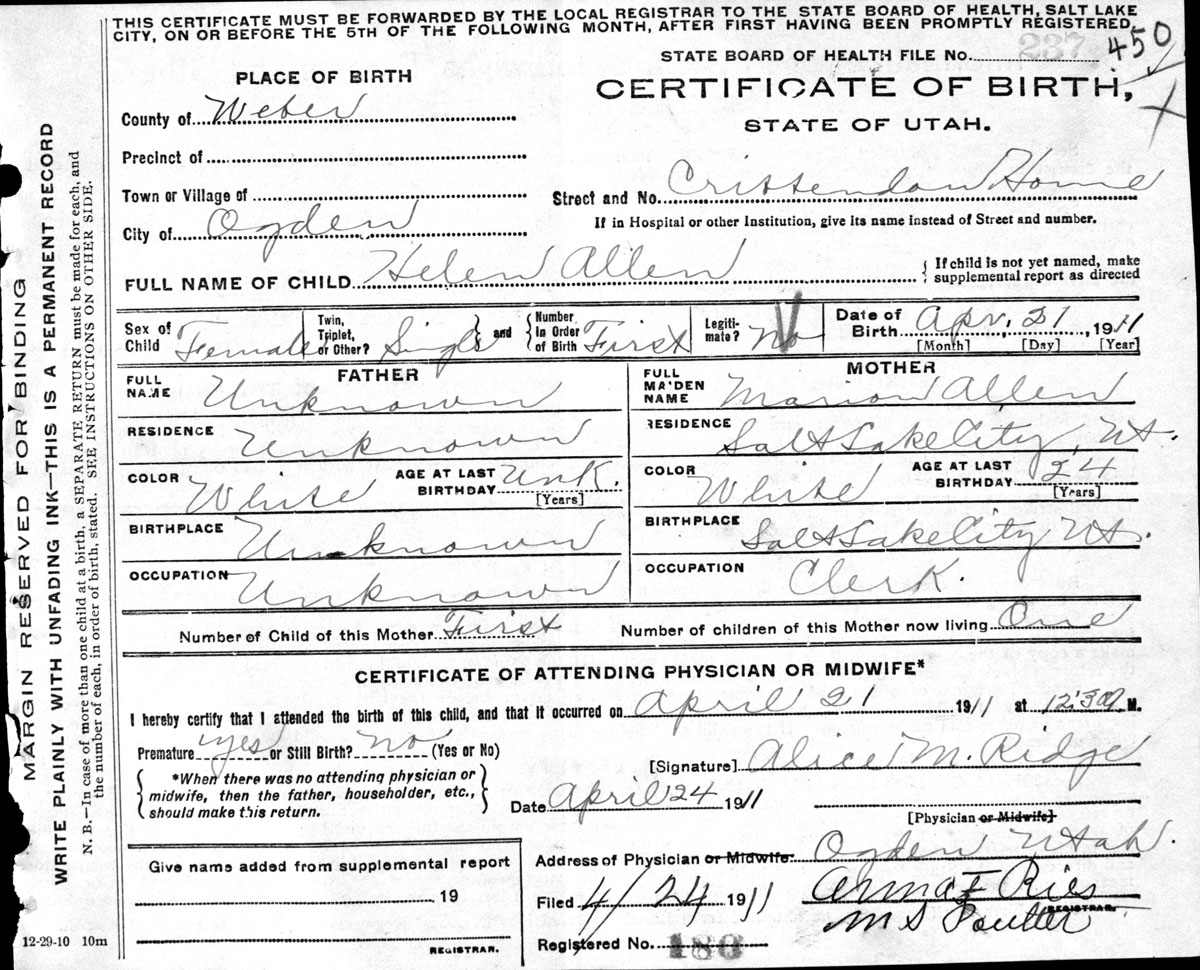 THIS CERTIFICATE MUST BE FORWARDED BY THE LOCAL REGISTRAR TO THE STATE BOARD OF HEALTH, SALT LAKE
CITY, ON OR BEFORE THE 5TH OF THE FOLLOWING MONTH, AFTER FIRST HAVING BEEN PROMPTLY REGISTERED.
STATE BOARD OF HEALTH FILE No. 237 450
PLACE OF BIRTH
CERTIFICATE OF BIRTH,
STATE OF UTAH.
County of Weber
Precinct of
Town or Village of
Street and No. Crittendon Home
City of Ogden
If in Hospital or other Institution, give its name instead of Street and number.
FULL NAME OF CHILD Helen Allen
{ If child is not yet named, make
supplemental report as directed
Sex of Child Female
Twin, Triplet, or Other? Single } and { Number in Order of Birth First
Legiti-mate? No
Date of Birth Apr. 21, 1911
[Month] [Day] [Year]
FATHER
MOTHER
FULL NAME Unknown
FULL MAIDEN NAME Marion Allen
RESIDENCE Unknown
RESIDENCE Salt Lake City, Ut.
COLOR White AGE AT LAST BIRTHDAY Unk. [Years]
COLOR White AGE AT LAST BIRTHDAY 24 [Years]
BIRTHPLACE Unknown
BIRTHPLACE Salt Lake City Ut.
OCCUPATION Unknown
OCCUPATION Clerk.
Number of Child of this Mother First
Number of children of this Mother now living One
CERTIFICATE OF ATTENDING PHYSICIAN OR MIDWIFE*
I hereby certify that I attended the birth of this child, and that it occurred on April 21 1911 at M.
Premature yes or Still Birth? no (Yes or No)
[Signature] Alice M. Ridge
{ *When there was no attending physician or
midwife, then the father, householder, etc.,
should make this return. }
Date April 24 1911
[Physician or Midwife]
Give name added from supplemental report
19
REGISTRAR.
Address of Physician or Midwife. Ogden Utah.
Filed 4/24 1911
Ries
REGISTRAR.
M S
Registered No. 180
12-29-10 10m
MARGIN RESERVED FOR BINDING
WRITE PLAINLY WITH UNFADING INK—THIS IS A PERMANENT RECORD
N. B.—In case of more than one child at a birth, a SEPARATE RETURN must be made for each, and
the number of each, in order of birth, stated. SEE INSTRUCTIONS ON OTHER SIDE.